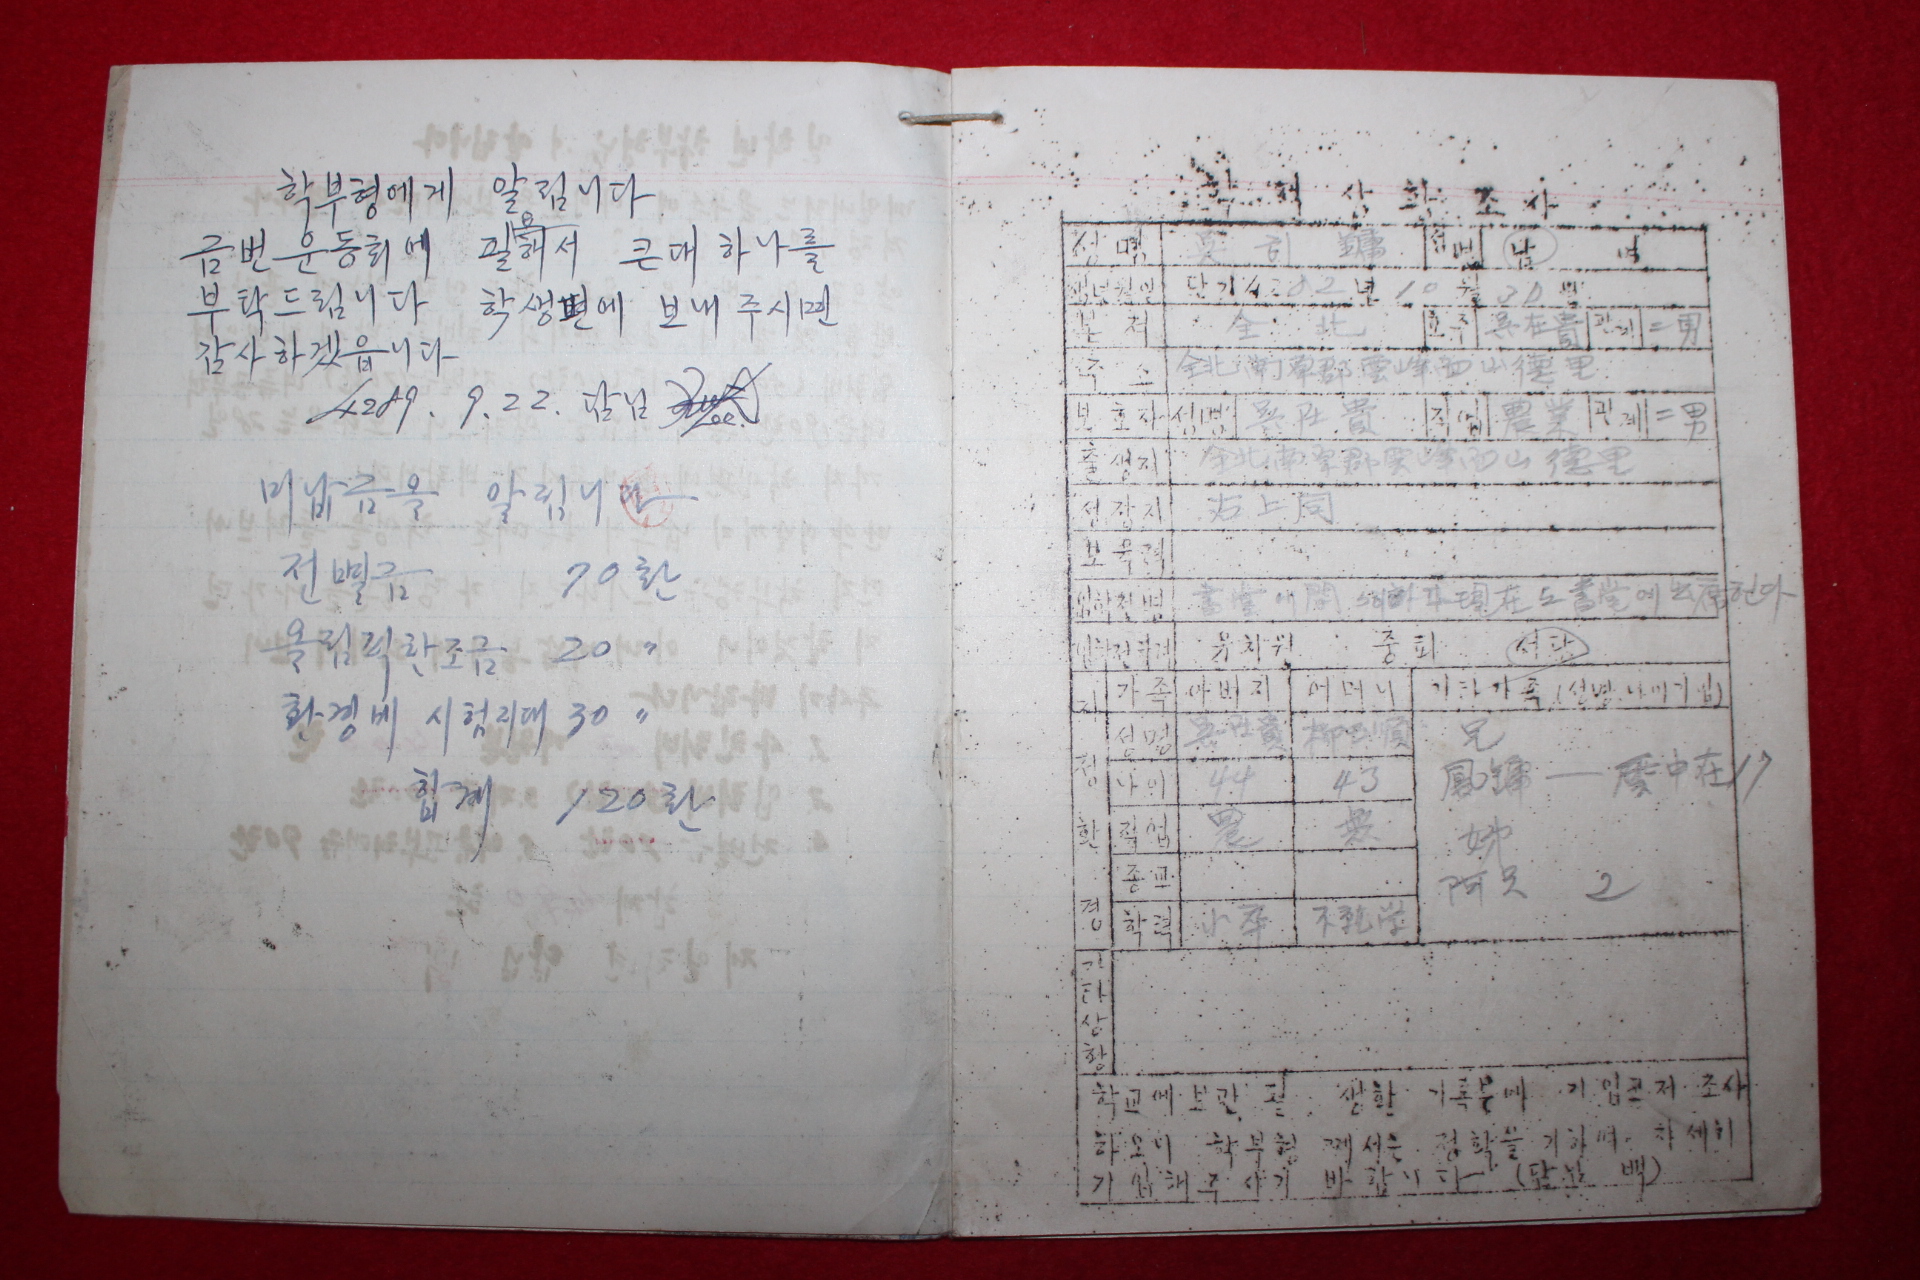 학부형에게 알립니다
금번 운동회에 필요해서 큰대 하나를
부탁드립니다 학생편에 보내 주시면
감사하겠읍니다
4289. 9. 22. 담님
미납금을 알립니다
전별금 70환
올림픽한조금 20 〃
환경비 시험지대 30 〃
합계 120환
학적상황조사
성명 吳 鏞 성별 남 여
생년월일 단기 4282年 10월 30일
본적 全北 호주 吳在貴 관계 二男
주소 全北南原郡雲峰面山德里
보호자 성명 吳在貴 직업 農業 관계 二男
출생지 全北南原郡雲峰面山德里
성장지 右上同
보육력
입학전 書堂 現在도 書堂에
입학전 유치원 중퇴 서당
가정환경
가족 아버지 어머니 기타가족(성명.나이기입)
성명 吳在貴 柳 順 兄
나이 44 43 鳳鏞 — 中在17
직업 農 農 姉
종교 2
학력 小卒 不就学
기타상황
학교에 보관 된 생활 기록부에 기입코저 조사
하오니 학부형 께서는 정확을 기하며 자세히
기입해주시기 바랍니다 (담님 백)